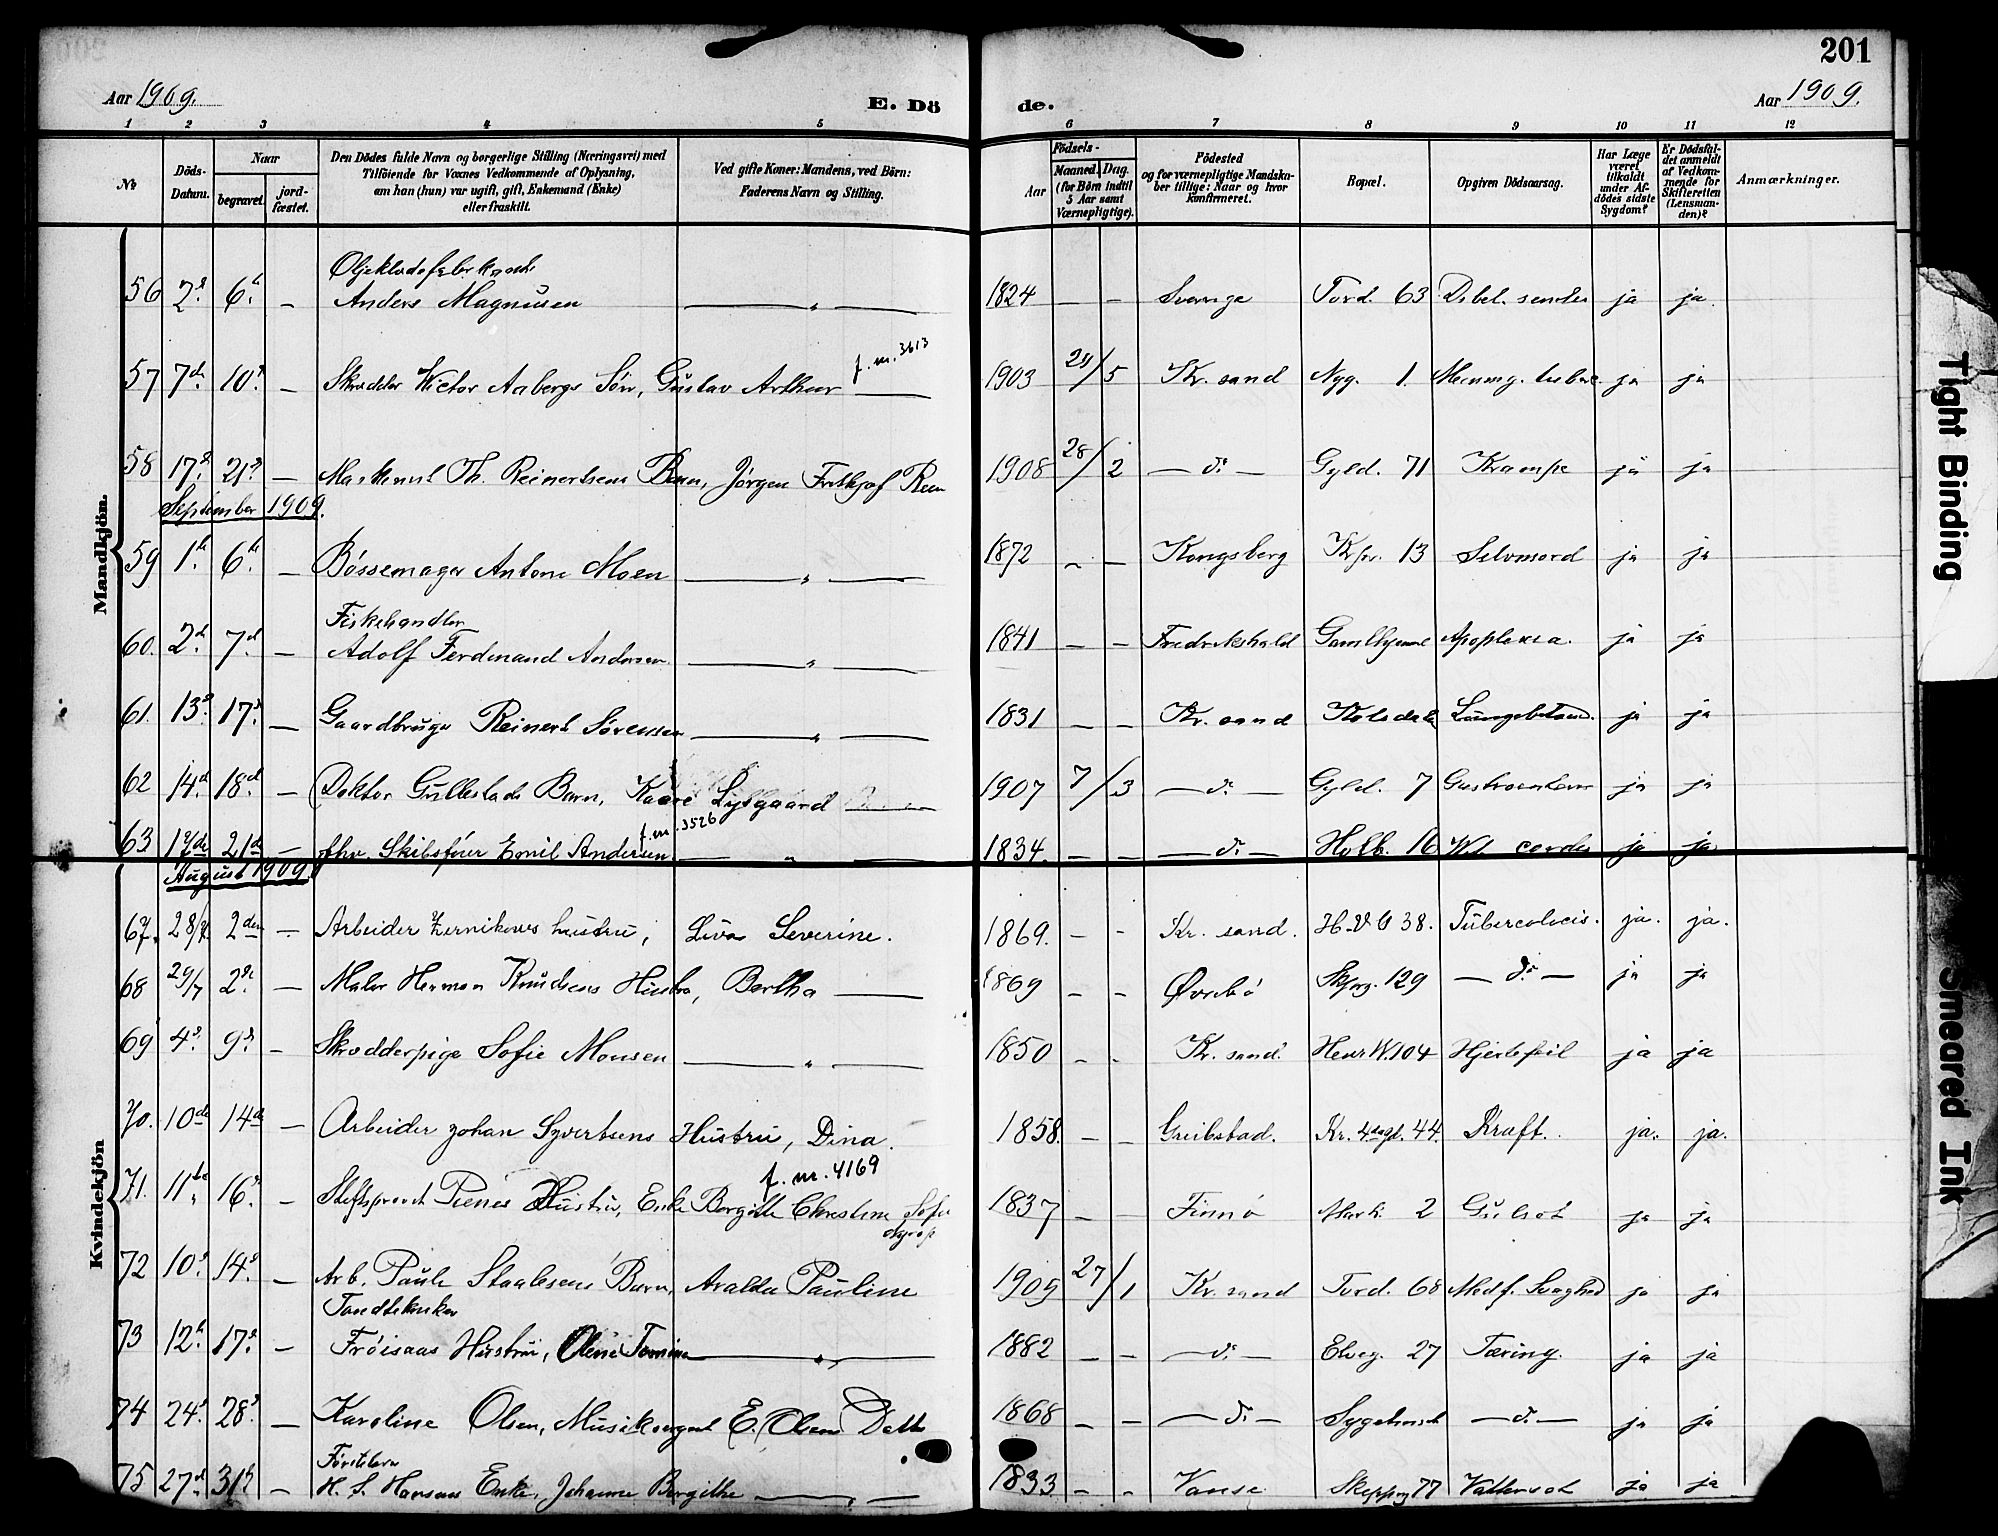 201
Aar 1909.
E. Dö
de.
Aar 1909.
1 2 3 4 5 6 7 8 9 10 11 12
No
Döds-Datum.
Naar
begravet.
jord-fæstet.
Den Dödes fulde Navn og borgerlige Stilling (Næringsvei) med
Tilföiende for Voxnes Vedkommende af Oplysning,
om han (hun) var ugift, gift, Enkemand (Enke)
eller fraskilt.
Ved gifte Koner: Mandens, ved Börn:
Faderens Navn og Stilling.
Födsels-
Aar
Maaned. Dag.
(for Börn indtil
5 Aar samt
Værnepligtige).
Födested
og for værnepligtige Mandska-
ber tillige: Naar og hvor
konfirmeret.
Bopæl.
Opgiven Dödsaarsag.
Har Læge
været
tilkaldt
under Af-
dödes sidste
Sygdom?
Er Dödsfal-
det anmeldt
af Vedkom-
mende for
Skifteretten
(Lensman-
den)?
Anmærkninger.
Mandkjön.
56 2d. 6t. — Anders Magnusen — „ — 1824 — — Sverige Tord. 63 ja ja.
f. nr. 3613
57 7de. 10d. — Skrædder Victor Aabergs Sön, Gustav Arthur — 1903 29/5 Kr. sand Nyg. 1. ja ja
58 17d. 21d. — Th. Reinertsens Barn, Jørgen Frithjof 1908 28/2 — do — Gyld. 71 Krampe ja ja
September 1909.
59 1te. 6te. — Bössemager Antoni Moen — „ — 1872 — — Kongsberg Kr.pr. 13 Selvmord ja ja
Fiskehandler
60. 2d. 7d. — Adolf Ferdinand Andersen — „ — 1841 — — Fredrikshald Gamlhjemmet Apoplexia. ja ja
61. 13d. 17d. — Gaardbruger Reinert Sörensen — „ — 1831 — — Kr. sand Kolsdalen ja ja
62 14d. 18d. — Doktor Gullestads Barn, Kaare Lysgaard — 1907 7/3 — do — Gyld. 7 ja ja
f. nr. 3526
63 17de 21de — fhv. Skibsförer Emil Andersen — „ — 1834. — — — do — Holb. 16 Vit. cordis ja ja
Kvindekjön
August 1909
67. 28/7. 2den — Arbeider hustru, Severine. 1869. — — Kr. sand. H.V.G 38. Tuberculosis. ja. ja.
68 29/7 2d. — Maler Herman Knudsens Hustru, Bertha — 1869 — — Øvrebö 129 — do — ja ja
69 4d. 9d. — Skrædderpige Sofie Monsen — „ — 1850 — — Kr. sand. Henr W. 104 Hjertefeil ja ja
70. 10de 14de — Arbeider Johan Syvertsens Hustru, Dina. 1858. — — Greibstad. Kr. 4desgt. 44. Kræft. ja. ja.
f. nr. 4169
71. 11te. 16d. — Stiftsprovst Hustru, Enke Birgitte Christine Sofie Nyrop 1837 — — Finnö Mark. 2 Gulsot ja ja
72 10d. 14d. — Arb. Paule Staalesens Barn, Aralda Pauline 1909 27/1 Kr. sand Tord. 68 Medf. Svaghed ja ja
Tandtekniker
73 12t. 17d. — Fröisaas Hustru, Oline Tomine — „ — 1882 — — — do — Elveg. 27 Tæring. ja ja
74 24d. 28d. — Karoline Olsen, Musiksergent E. Olsens Datter 1868 — — — do — Sygehuset — do — ja ja
75 27d. 31t. — H. S. Hansens Enke, Johanne Birgithe — „ — 1833 — — Vanse 77 Vattersot ja ja
Tight Binding
Smeared Ink